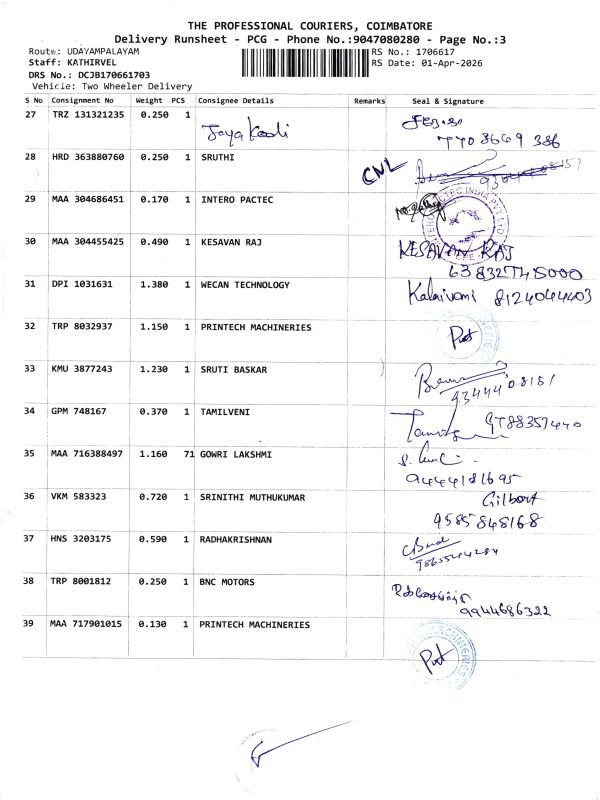 THE PROFESSIONAL COURIERS, COIMBATORE
Delivery Runsheet - PCG - Phone No.:9047080280 - Page No.:3
Route: UDAYAMPALAYAM
RS No.: 1706617
Staff: KATHIRVEL
RS Date: 01-Apr-2026
DRS No.: DCJB170661703
Vehicle: Two Wheeler Delivery
S No Consignment No Weight PCS Consignee Details Remarks Seal & Signature
27 TRZ 131321235 0.250 1
7708669 386
28 HRD 363880760 0.250 1 SRUTHI
CNL
29 MAA 304686451 0.170 1 INTERO PACTEC
30 MAA 304455425 0.490 1 KESAVAN RAJ KESAVAN RAJ
31 DPI 1031631 1.380 1 WECAN TECHNOLOGY Kalaivani 8124044403
32 TRP 8032937 1.150 1 PRINTECH MACHINERIES
33 KMU 3877243 1.230 1 SRUTI BASKAR
93444 08151
34 GPM 748167 0.370 1 TAMILVENI
9788357440
35 MAA 716388497 1.160 71 GOWRI LAKSHMI
9444181695
36 VKM 583323 0.720 1 SRINITHI MUTHUKUMAR Gilbert
9585848168
37 HNS 3203175 0.590 1 RADHAKRISHNAN
38 TRP 8001812 0.250 1 BNC MOTORS
9944686322
39 MAA 717901015 0.130 1 PRINTECH MACHINERIES